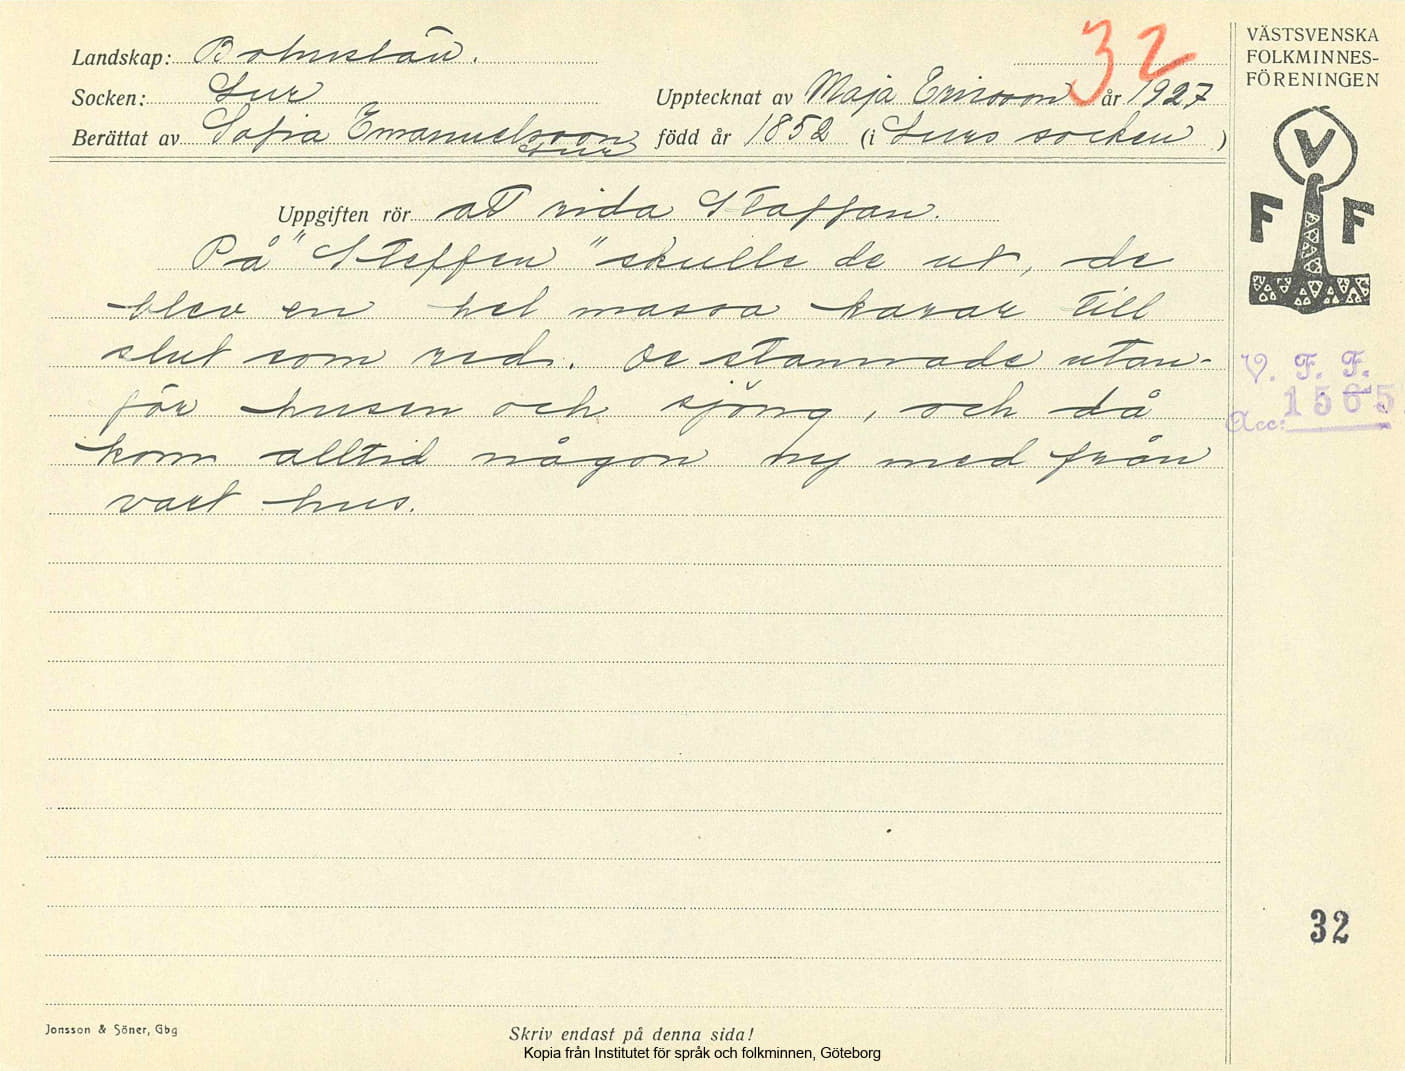 Landskap: Bohuslän.
Socken: Lur
Berättat av Sofia Emanuelsson
Lur
32
Upptecknat av Maja Ericsson år 1927
född år 1852 (i Lurs socken )
Uppgiften rör att rida Staffan.
På "Steffen" skulle de ut, de
blev en hel massa karar till
slut som red. De stannade utan-
för husen och sjöng, och då
kom alltid någon ny med från
vart hus.
VÄSTSVENSKA
FOLKMINNES-
FÖRENINGEN
V
F F
V. F. F.
Acc: 1565
32
Jonsson & Söner, Gbg
Skriv endast på denna sida!
Kopia från Institutet för språk och folkminnen, Göteborg